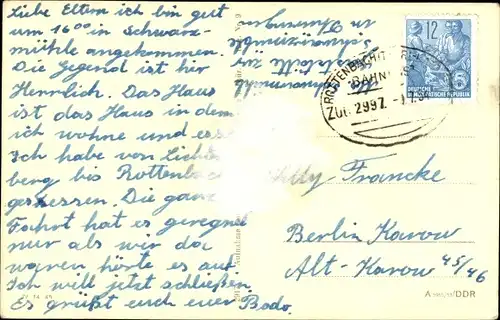 Liebe Eltern ich bin gut
um 16⁰⁰ in Schwarz-
mühle angekommen.
Die Gegend ist hier
Herrlich. Das Haus
ist das Haus in dem
ich wohne und esse
Ich habe von Lichten
berg bis Rottenbach
gesessen. Die ganze
Fahrt hat es geregnet
nur als wir da
waren hörte es auf
Ich will jetzt schließen
Es grüßt euch euer Bodo.
Schwarzmühle
12
DEUTSCHE
DEMOKRATISCHE REPUBLIK
ROTTENBACH
BAHNPOST
Zug 2997
Willy Francke
Berlin Karow
Alt-Karow 45/46
DDR